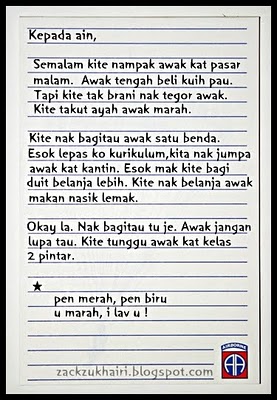 Kepada ain,
Semalam kite nampak awak kat pasar
malam. Awak tengah beli kuih pau.
Tapi kite tak brani nak tegor awak.
Kite takut ayah awak marah.
Kite nak bagitau awak satu benda.
Esok lepas ko kurikulum,kita nak jumpa
awak kat kantin. Esok mak kite bagi
duit belanja lebih. Kite nak belanja awak
makan nasik lemak.
Okay la. Nak bagitau tu je. Awak jangan
lupa tau. Kite tunggu awak kat kelas
2 pintar.
pen merah, pen biru
u marah, i lav u !
AIRBORNE
zackzukhairi.blogspot.com